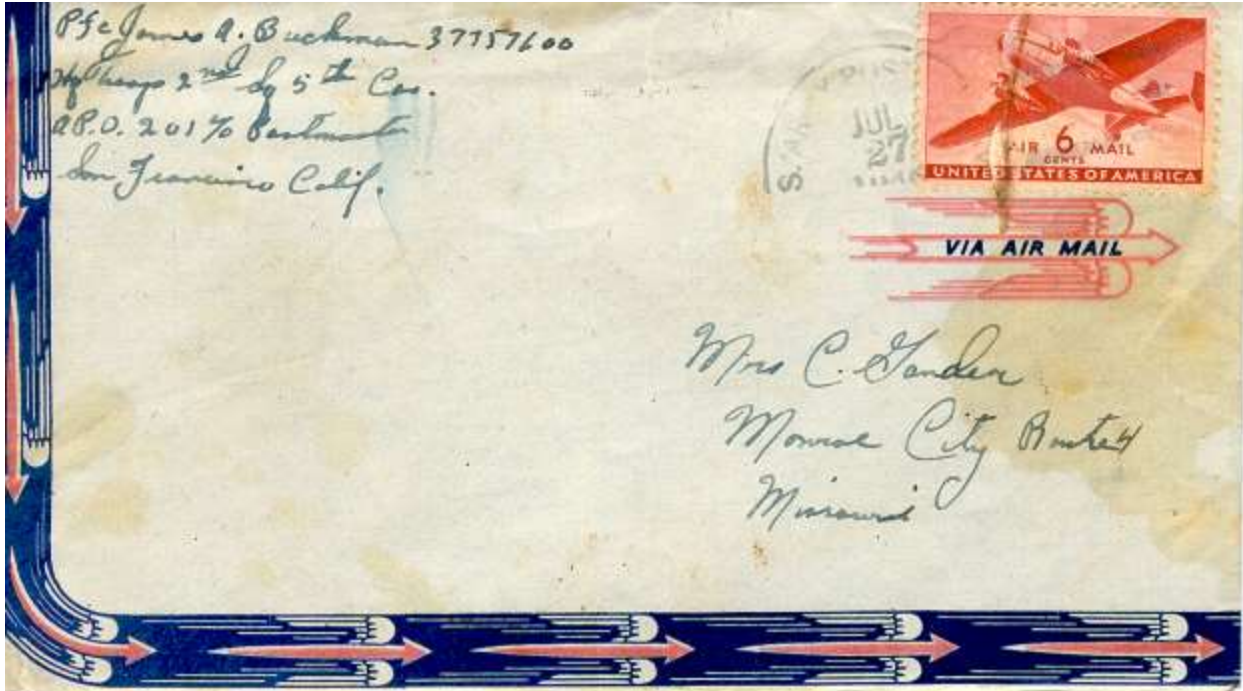 Pfc James A. Buckman 37757600
Hq Troops 2nd Sq 5th Cav.
A.P.O. 201 % Postmaster
San Francisco Calif.
JUL
27
AIR 6 MAIL
CENTS
UNITED STATES OF AMERICA
VIA AIR MAIL
Mrs C. Sander
Monroe City Route 4
Missouri